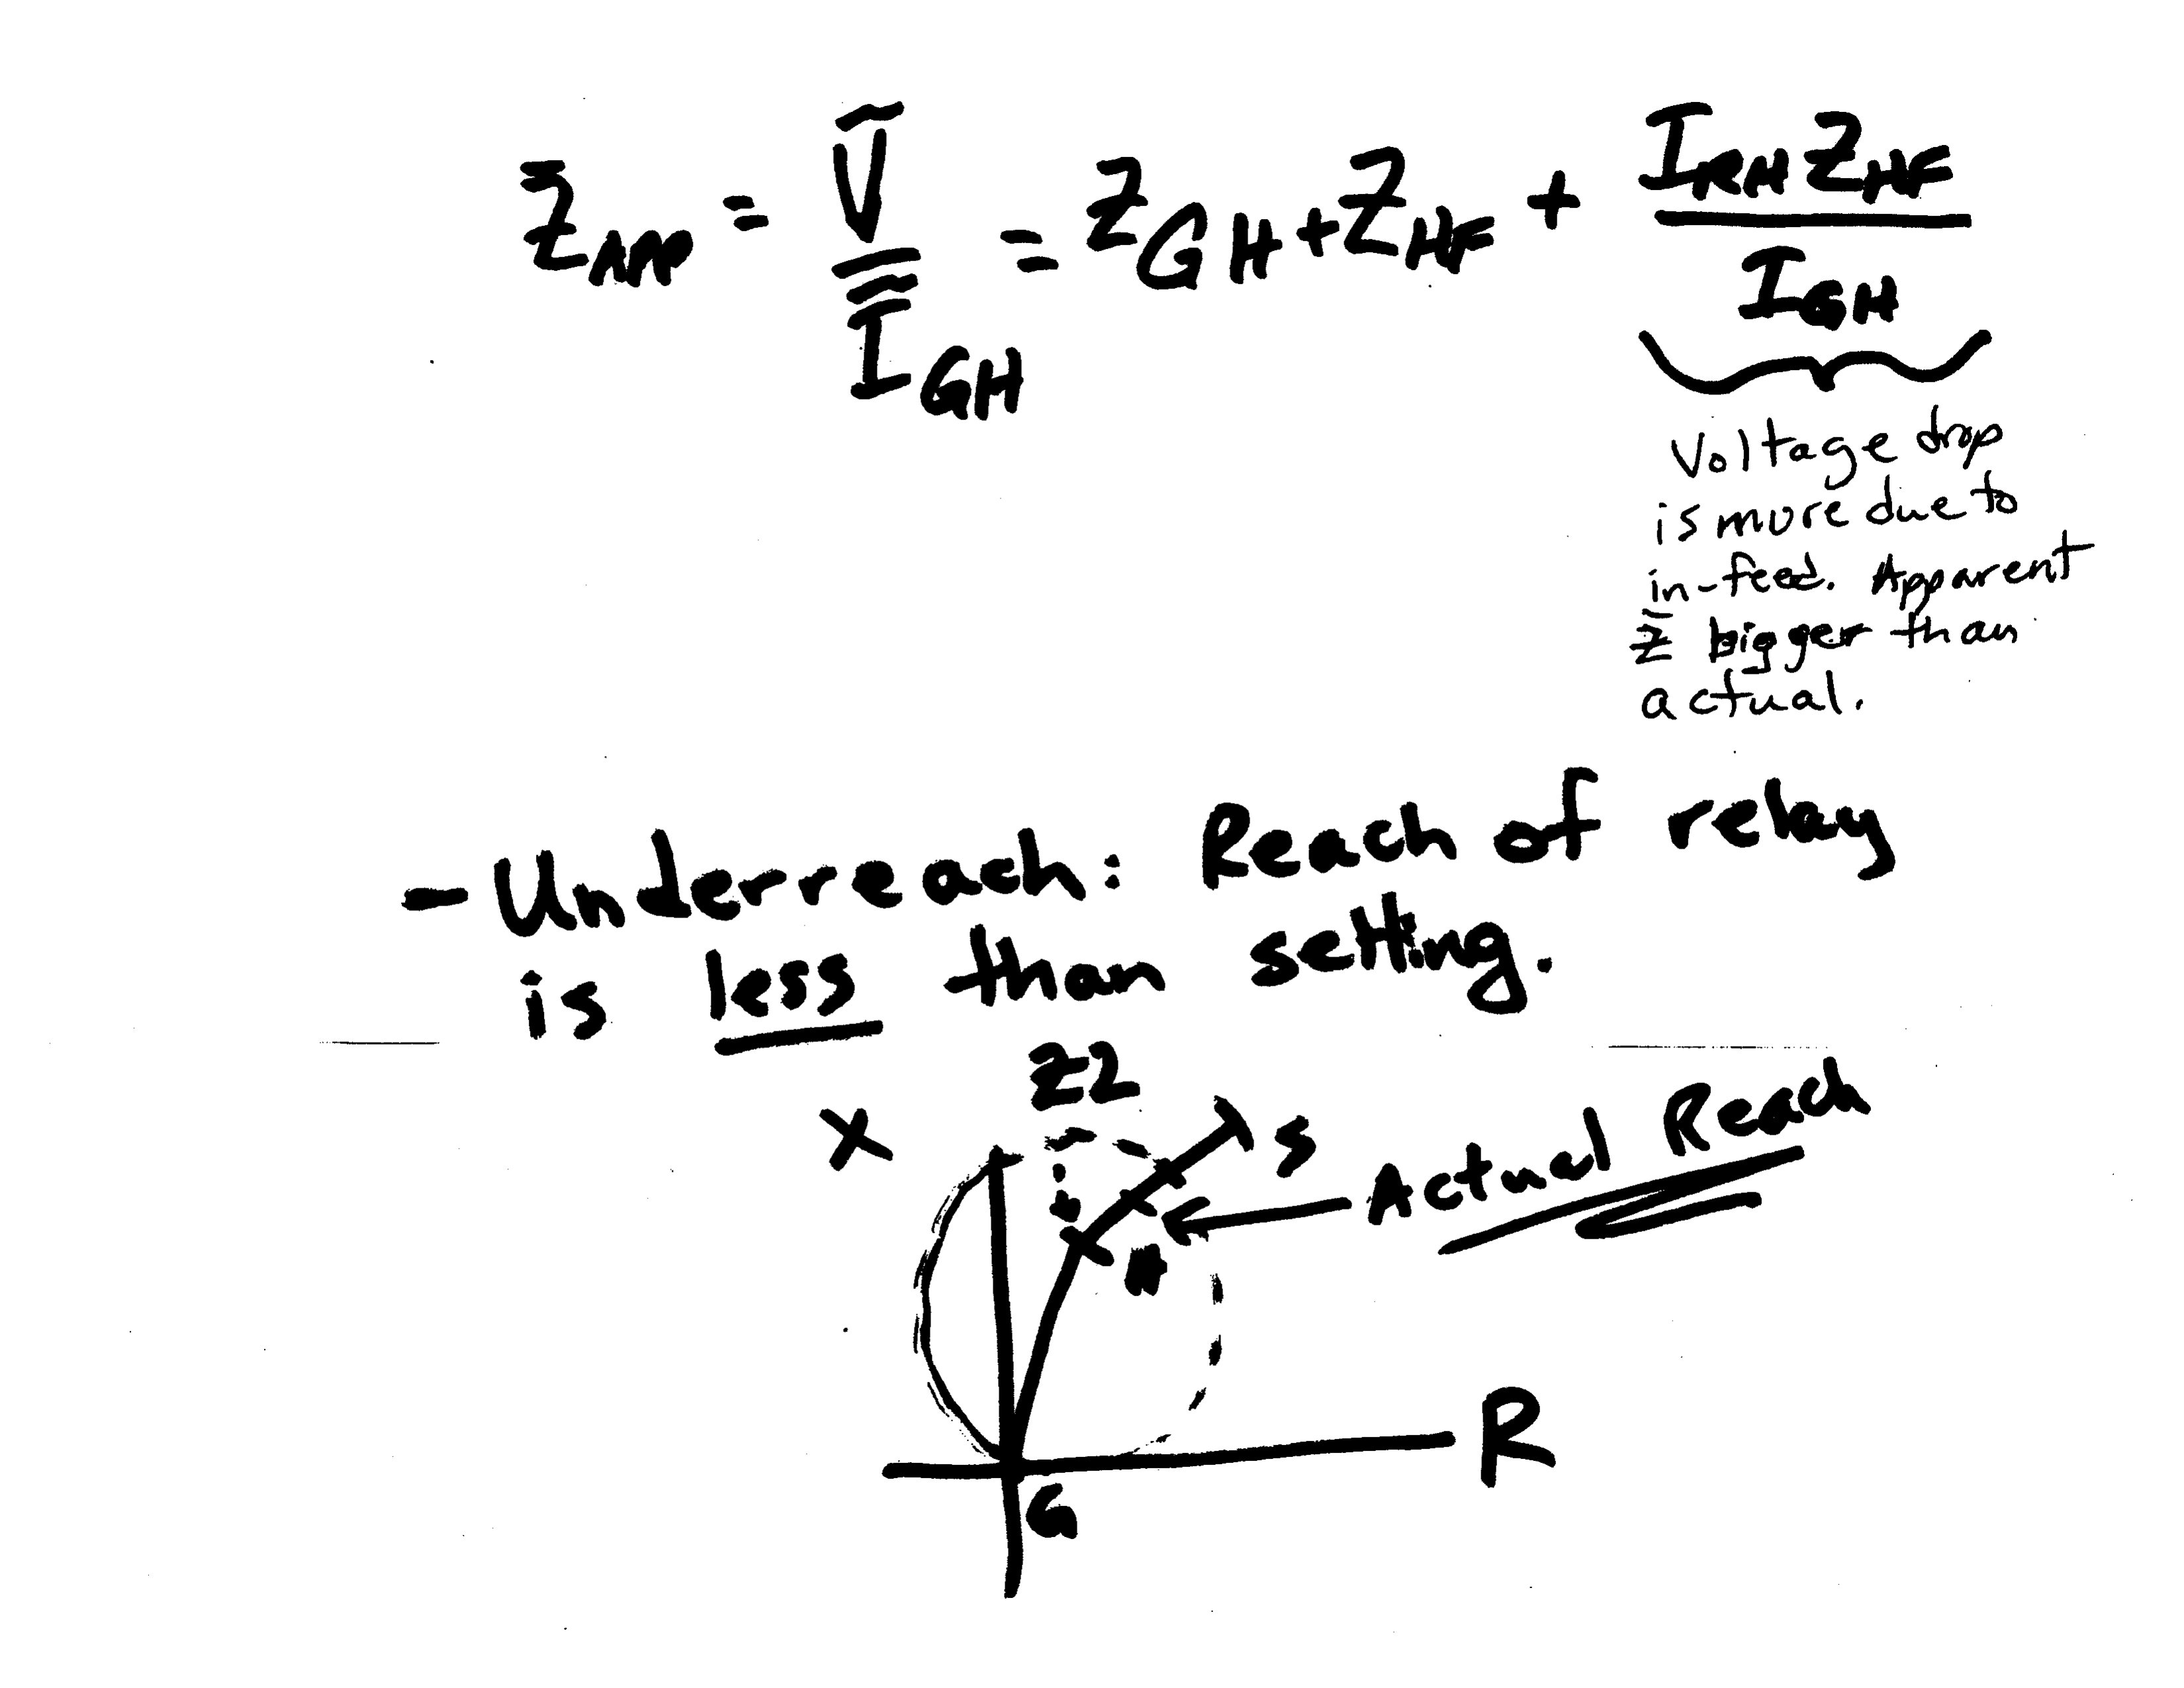 Z̄APP = Ṽ / Ī GH = ZGH + ZHF + IRH ZHF / IGH
Voltage drop
is more due to
in-feed. Apparent
Z̄ bigger than
actual.
- Underreach: Reach of relay
is less than setting.
Z2
X
S
Actual Reach
H
R
G